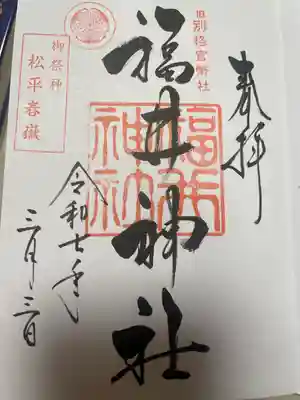 奉拝
旧別格官幣社
福井神社
福井神社
御祭神
松平春嶽
令和七年
三月三日